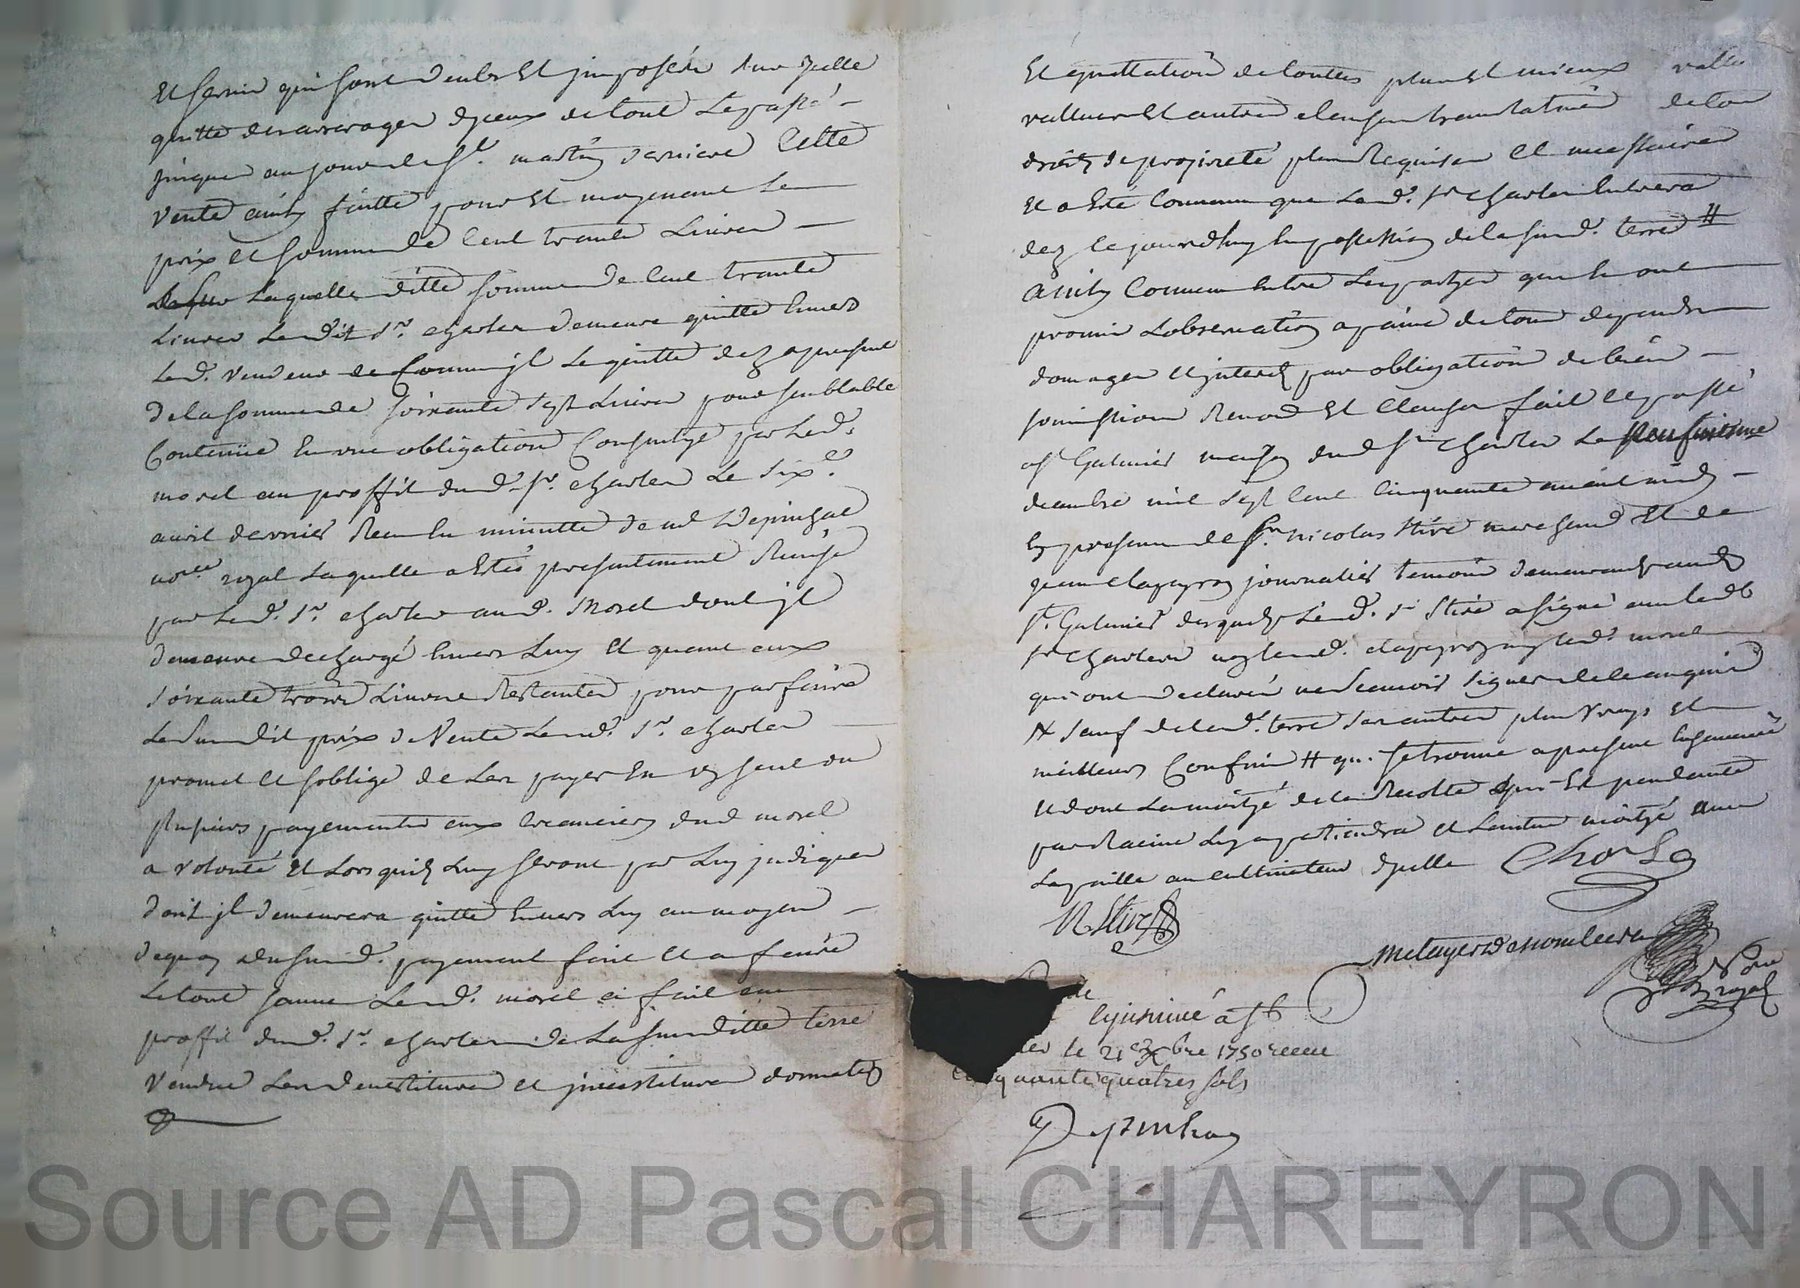 Et servis qui sont deubs Et jmposés sur jcelle
quitte des arrerages d'jceux de tout Le passé
jusques au jour de St. martin derniere Cette
Vente ainsy faitte pour Et moyenant Le
prix et somme de Cent trante Livres
Laquelle ditte somme de Cent trante
Livres Ledit Sr. charles demeure quitte Envers
Led. Vendeur Comme jl Le quitte dez apresent
de la somme de soixante sept Livres pour semblable
Contenüe En une obligation Consentye par Led.
morel au proffit dud. Sr. charles Le six.e
avril dernier Receu Me Depinhac
no.re royal Laquelle a Estés presentement Remise
par Led. Sr. charles aud. Morel dont jl
demeure dechargé Envers Luy Et quant aux
soixante trois Livres Restantes pour parfaire
Le susdit prix de Vente Led. Sr. charles
promet et soblige de Les payer En un seul ou
plusieurs payements aux creanciers dud morel
a volonté Et Lors quils Luy seront par Luy jndiques
dont jl demeurera quitte Envers Luy au moyen
dequoy du susd. payement fait Et a faire
Le tout comme Led. morel a fait au
proffit dud. Sr. charles de La susditte terre
Vendue Les devestitures et jnvestitures
Et quittation de touttes plus Et mieux values
valleur Et autres clauses translatives de tous
droits de proprieté plus Requises Et necessaires
Et a Esté Convenu que Led. Sr charles Entrera
dez ce jourdhuy En possession de la susd. terre #
ainsy Convenu Entre Les partyes qui En ont
promis Lobservation a paine de tous depends
domages Et jnterets par obligation de biens
soumissions Renon. Et Clauses fait Et passé
a St Galmier maison dud Sr charles Le
decembre mil sept Cent Cinquante avant midy
En presence de Sr. nicolas Stive marchand Et de
jean clapeyron journalier temoins demeurants aud
St. Galmier desquels Led. Sr Stive a signé avec led
Sr charles non Led. clapeyron ny Led. morel
qui ont declarés ne scavoir signer de ce enquis
# sauf de lad. terre ses autres plus Vrays Et
meilleurs Confins # qui se trouve apresent Ensemencé
Et dont La moityé de la Recolte qui Est pendante
par Racine Luy apartiendra et Lautre moityé avec
La paille au cultivateur dycelle Charles
N Stive
Metayer Desrombiers
No.re royal
insinué a St
le 21e Xbre 1750 receu
Cinquante quatre sols
Depinhac
Source AD Pascal CHAREYRON